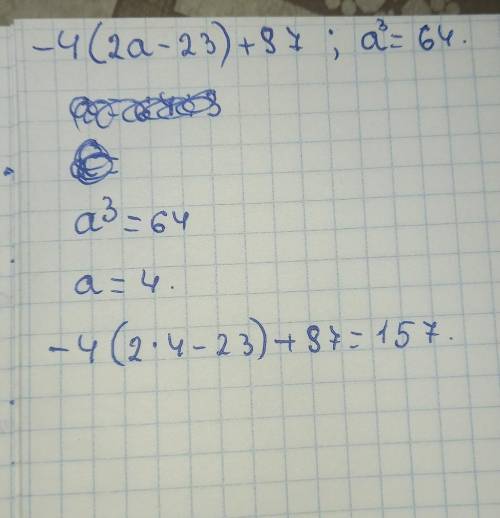 -4(2a-23)+97 ; a³=64.
a³=64
a=4.
-4(2·4-23)+97=157.